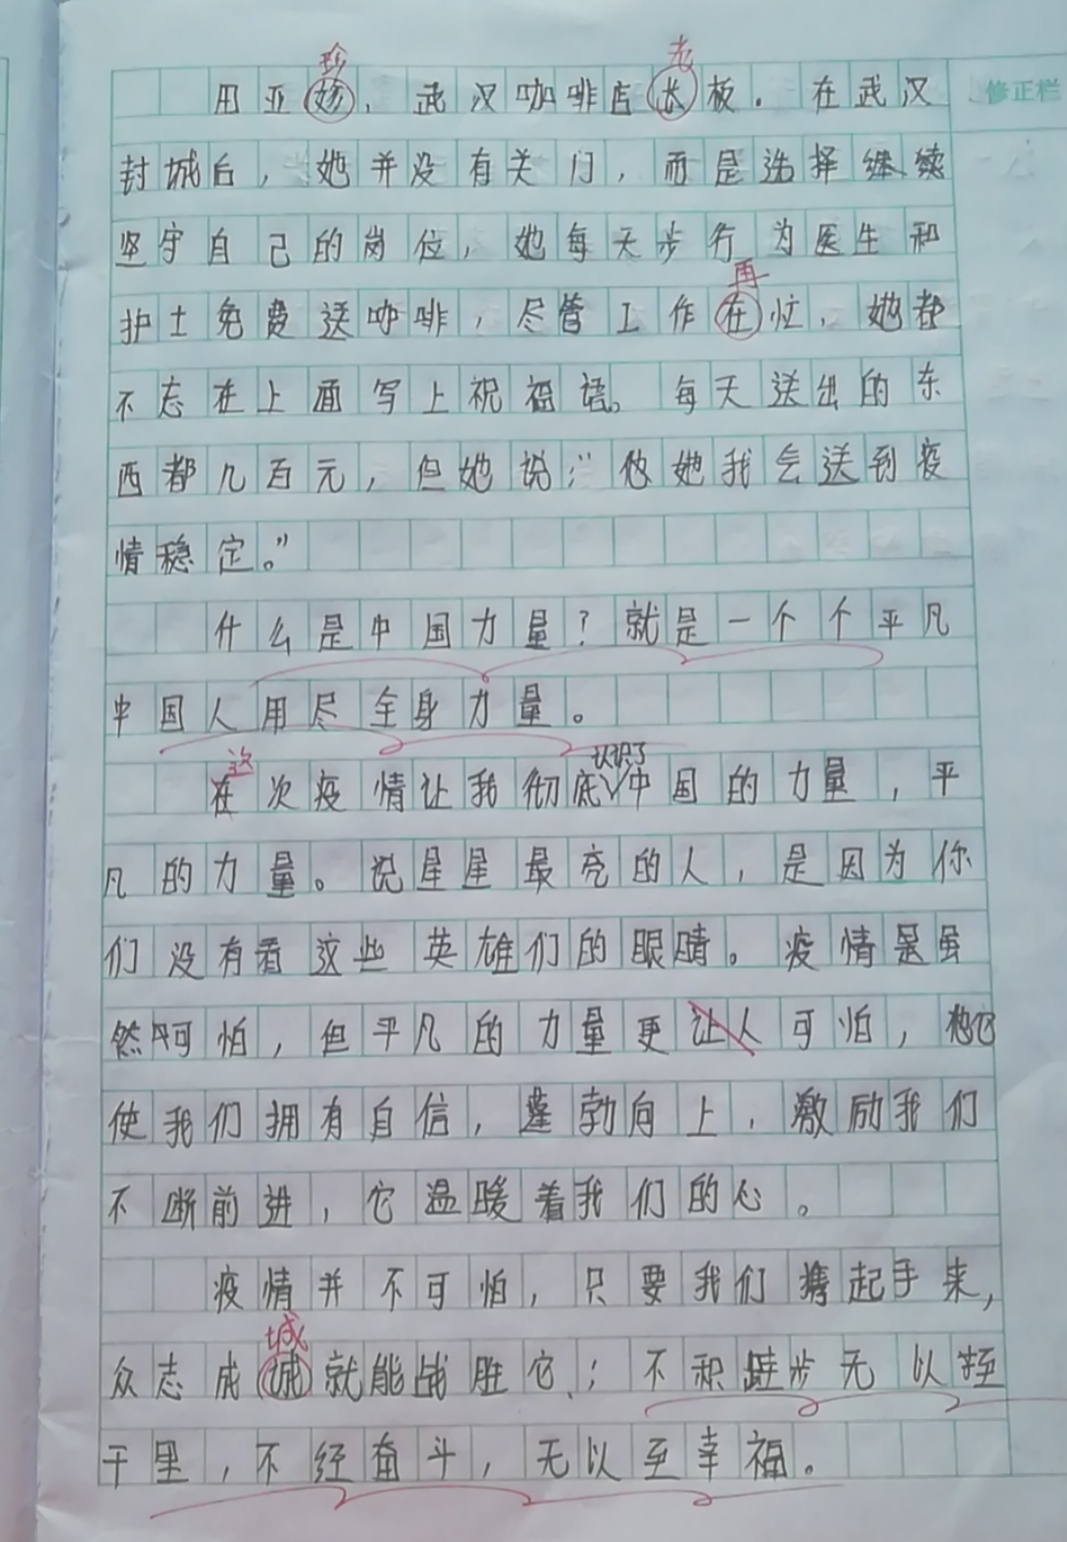 珍 老
田亚妗，武汉咖啡店长板。在武汉
修正栏
封城后，她并没有关门，而是选择继续
坚守自己的岗位，她每天步行为医生和
再
护士免费送咖啡，尽管工作在忙，她都
不忘在上面写上祝福语。每天送出的东
西都几百元，但她说："他她我会送到疫
情稳定。"
什么是中国力量？就是一个个平凡
中国人用尽全身力量。
这 认识了
在次疫情让我彻底中国的力量，平
凡的力量。说星星最亮的人，是因为你
们没有看这些英雄们的眼睛。疫情是虽
然可怕，但平凡的力量更让人可怕，它
使我们拥有自信，蓬勃向上，激励我们
不断前进，它温暖着我们的心。
疫情并不可怕，只要我们携起手来，
城
众志成诚就能战胜它；不积跬步无以至
千里，不经奋斗，无以至幸福。